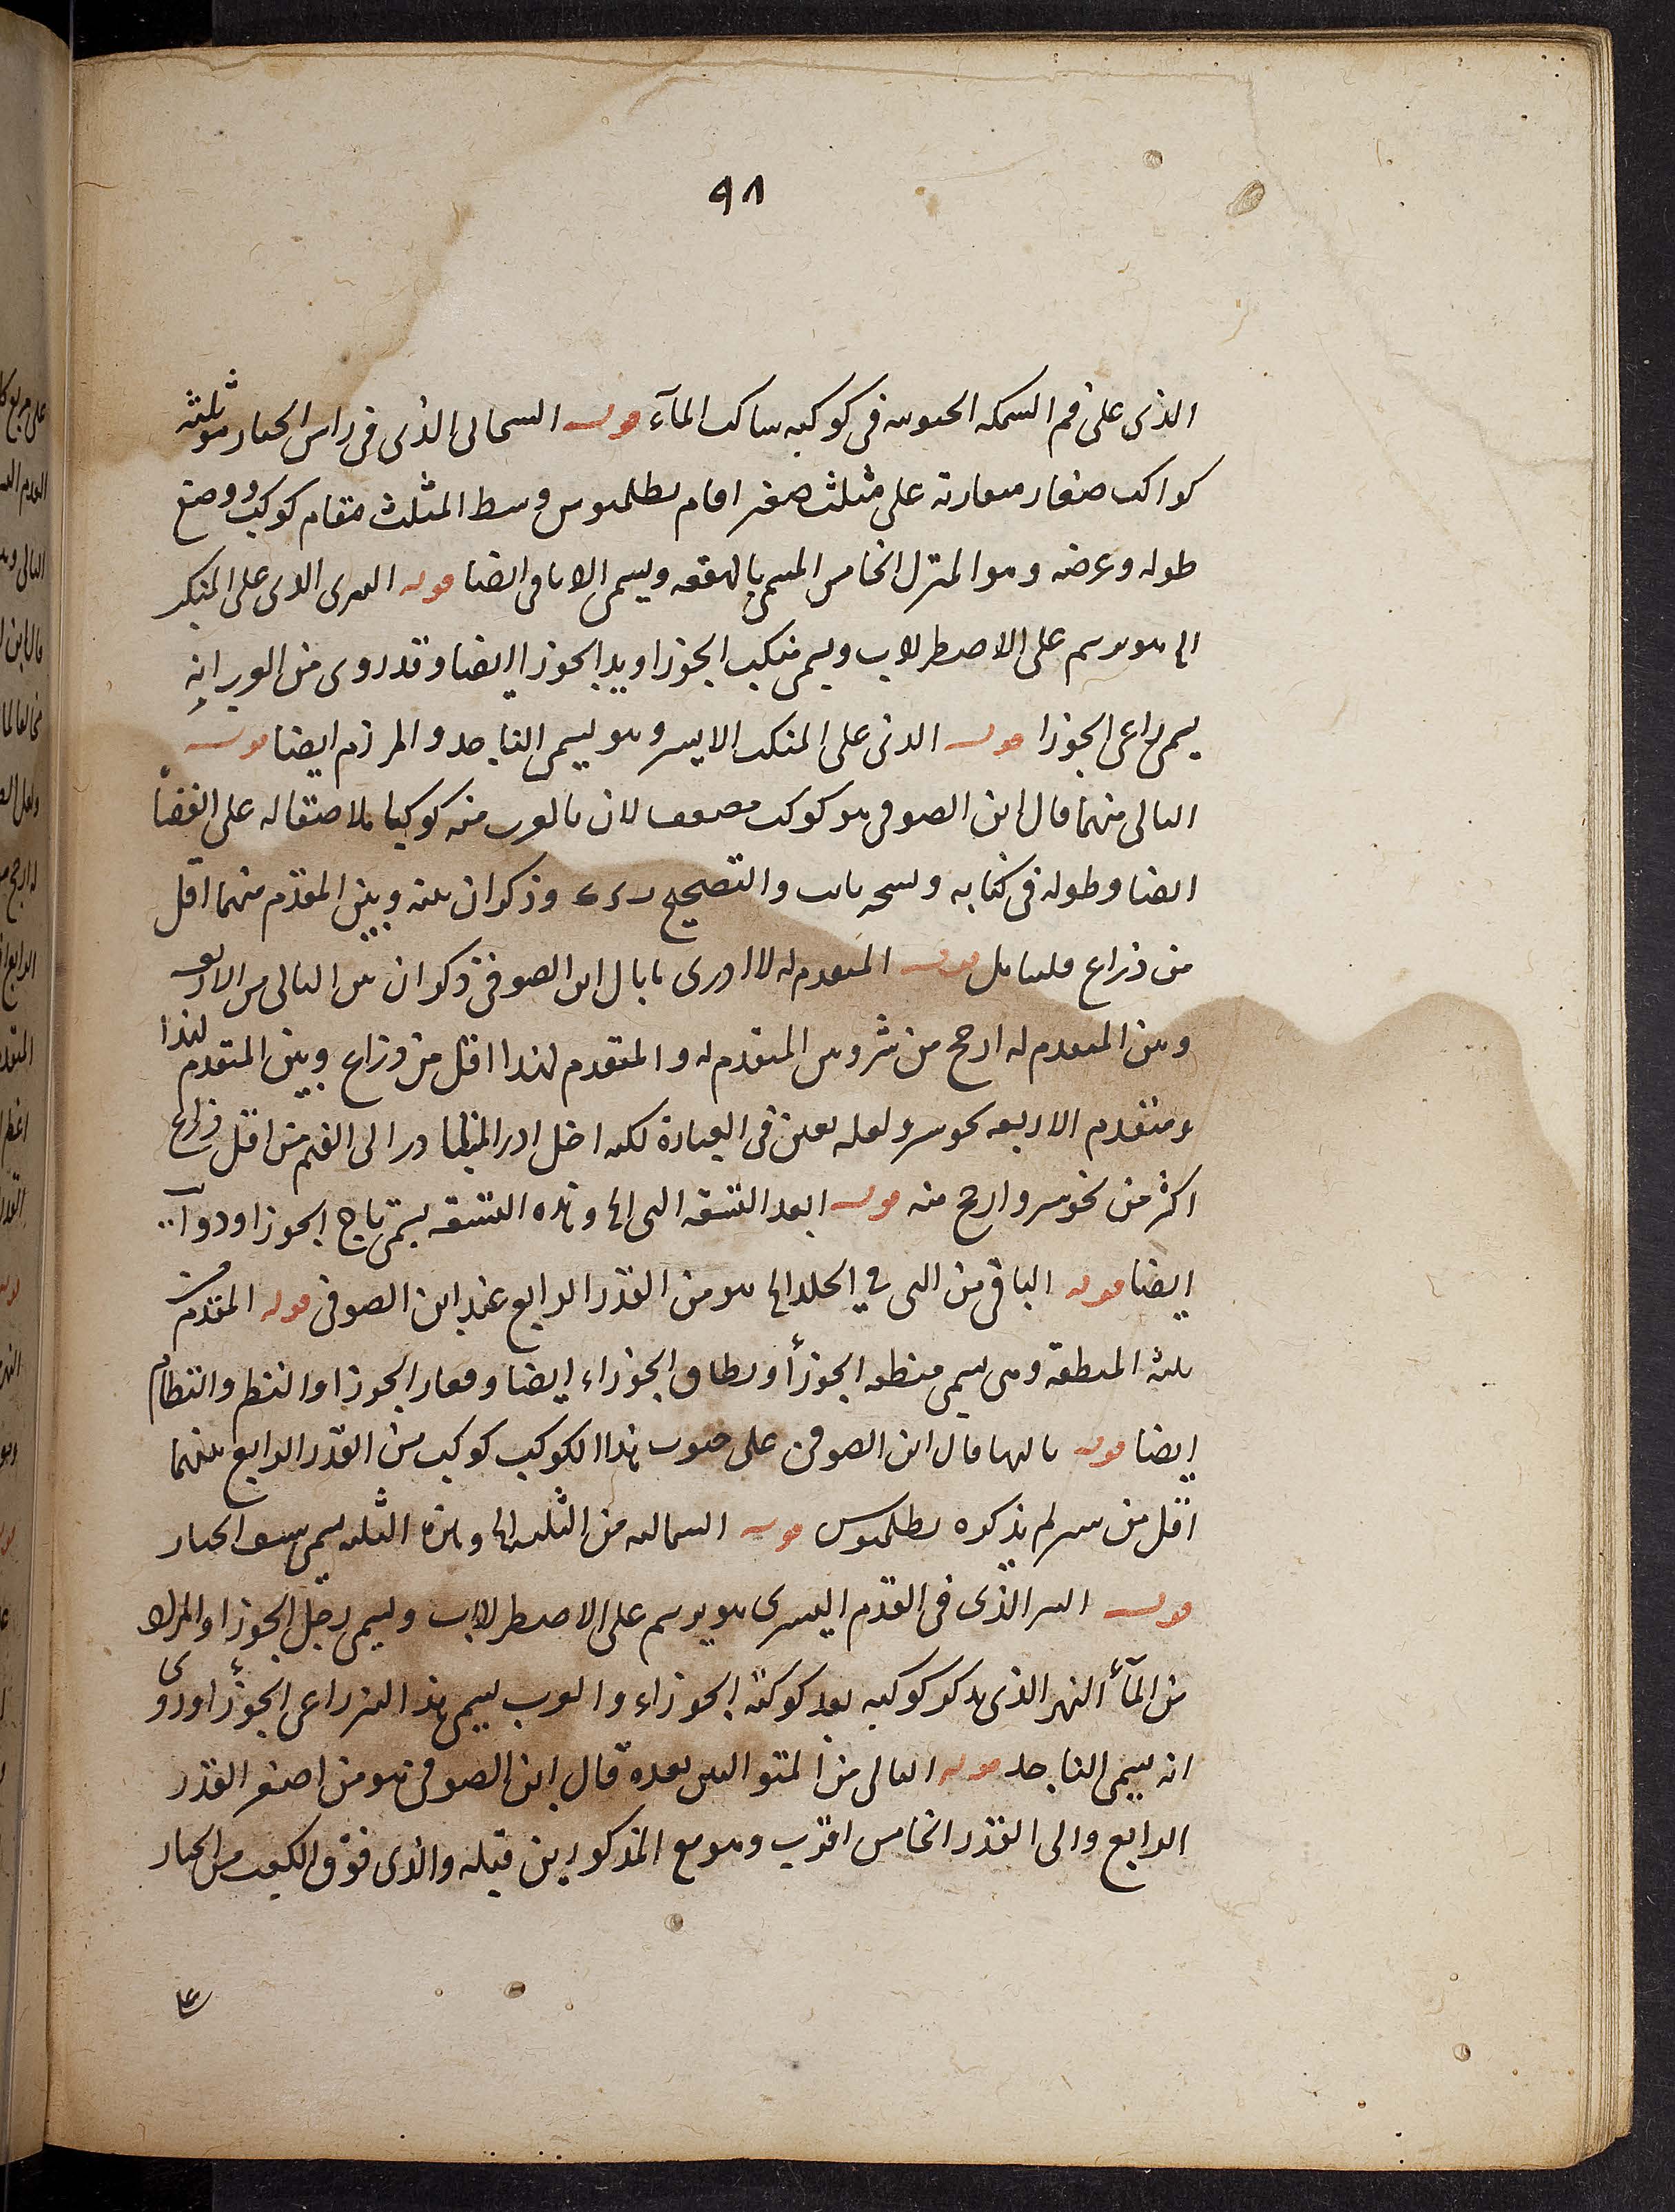 ٩٨
الذى على فم السمكة الجنوبية فى كوكبة ساكب المآء قوله السحابى الذى فى راس الجبار هو ثلثة
كواكب صغار متقاربة على مثلث صغير اقام بطلميوس وسط المثلث مقام كوكب ووضع
طوله وعرضه وهو المنزل الخامس المسمى بالهقعه ويسمى الاثافى ايضا قوله النير الذى على المنكب
الخ هو يرسم على الاصطرلاب ويسمى منكب الجوزا ويد الجوزا ايضا وقد روى من العرب انه
يسمى راعى الجوزا قوله الذى على المنكب الايسر وهو يسمى الناجد والمرزم ايضا قوله
التالى منهما قال ابن الصوفى هو كوكب مضعف لان بالقرب منه كوكبا ملاصقا له على القفا
ايضا وطوله فى كتابه ونسخه والتصحيح وذكر ان بينه وبين المقدم منهما اقل
من ذراع فليتامل قوله المتقدم له لا ادرى ما بال ابن الصوفى ذكر ان بين التالى من الاربعه
وبين المتقدم له ارجح من شبر وبين المتقدم له والمتقدم لهذا اقل من ذراع وبين المتقدم لهذا
ومتقدم الاربعه نحو شبر ولعله تفنن فى العبارة لكنه اخل اذ المتبادر الى الفهم من اقل ذراع
اكثر من نحو شبر وارجح منه قوله ابعد التسعة التى الخ وهذه التسعة يسمى تاج الجوزا وذوائب
ايضا قوله الباقى من التى فى الجلد الخ هو من القدر الرابع عند ابن الصوفى قوله المتقدم من
ثلثة المنطقة وهى يسمى منطقة الجوزأ ونطاق الجوزاء ايضا وفقار الجوزا والنظم والنظام
ايضا قوله تاليها قال ابن الصوفى على جنوب هذا الكوكب كوكب من القدر الرابع بينهما
اقل من شبر لم يذكره بطلميوس قوله الشماليه من الثلثة الخ وهذه الثلثة يسمى سيف الجبار
قوله النير الذى فى القدم اليسرى هو يرسم على الاصطرلاب ويسمى رجل الجوزا والمراد
من المآء النهر الذى يذكر كوكبه بعد كوكبة الجوزاء والعرب يسمى هذا النير راعى الجوزأ وروى
انه يسمى الناجد قوله التالى من المتواليين بعده قال ابن الصوفى هو من اصغر القدر
الرابع والى القدر الخامس اقرب وهو مع المذكور بن قبله والذى فوق الكعب من الجبار
على